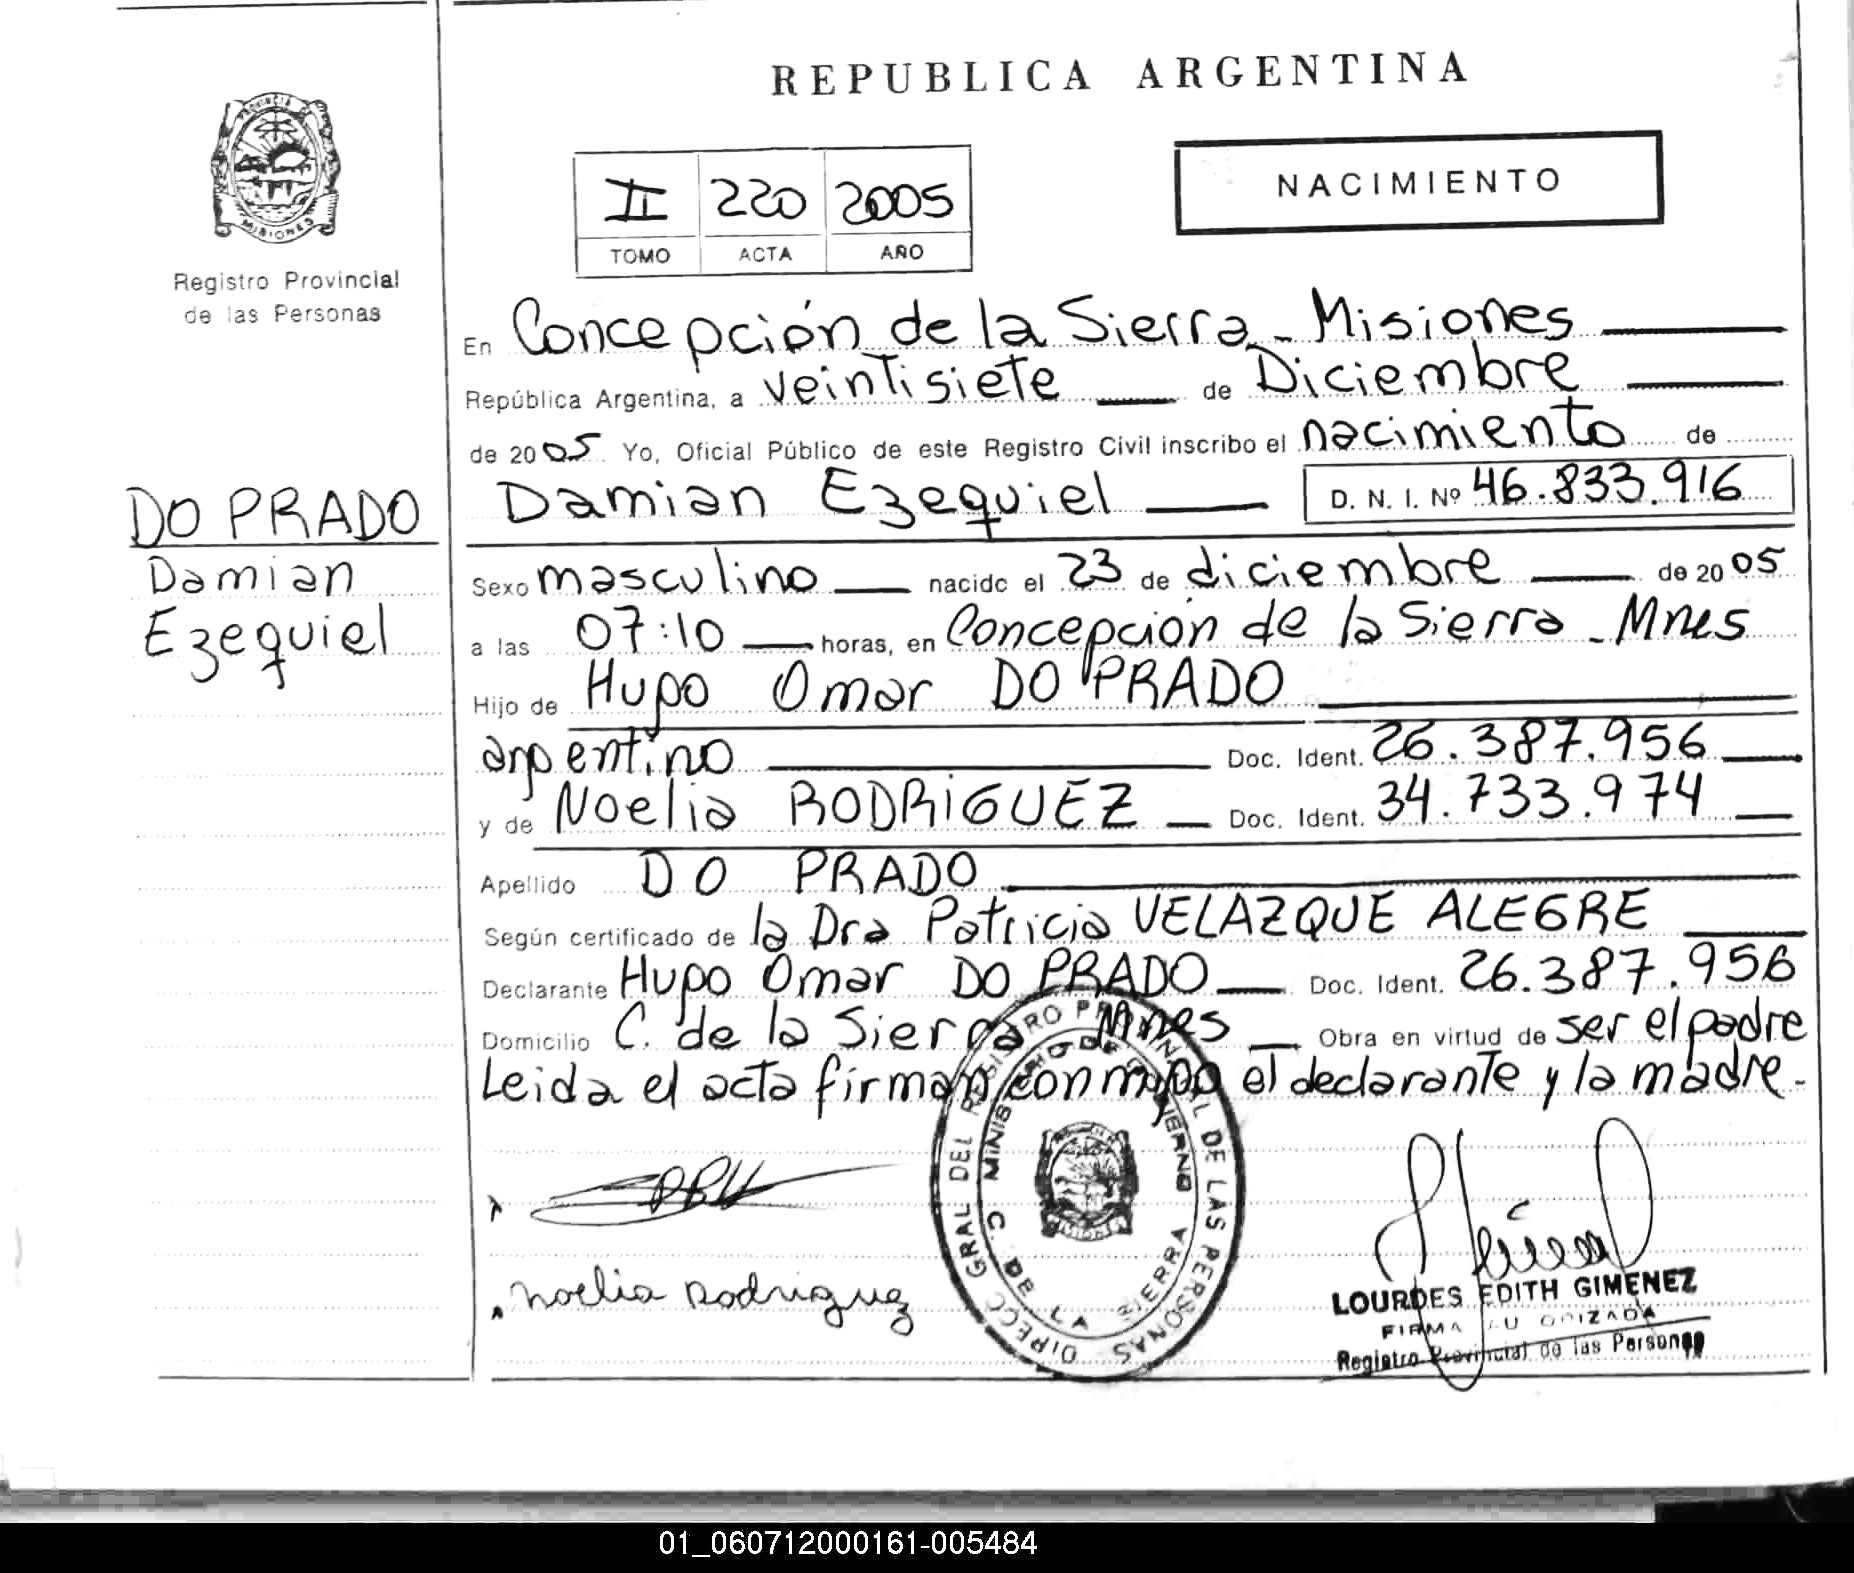 REPUBLICA ARGENTINA
PROVINCIA
MISIONES
Registro Provincial
de las Personas
II 220 2005
TOMO ACTA AÑO
NACIMIENTO
En Concepción de la Sierra - Misiones
República Argentina, a veintisiete de Diciembre
de 2005 Yo, Oficial Público de este Registro Civil inscribo el nacimiento de
Damian Ezequiel D. N. I. Nº 46.833.916
DO PRADO
Damian
Ezequiel
Sexo masculino nacido el 23 de diciembre de 2005
a las 07:10 horas, en Concepción de la Sierra - Mnes
Hijo de Hugo Omar DO PRADO
argentino Doc. Ident. 26.387.956
y de Noelia RODRIGUEZ Doc. Ident. 34.733.974
Apellido DO PRADO
Según certificado de la Dra Patricia VELAZQUE ALEGRE
Declarante Hugo Omar DO PRADO Doc. Ident. 26.387.956
Domicilio C. de la Sierra Mnes Obra en virtud de ser el padre
Leida el acta firman conmigo el declarante y la madre.-
DIRECC GRAL DEL REGISTRO PROVINCIAL DE LAS PERSONAS
MINISTERIO DE GOBIERNO
C. DE LA SIERRA
Noelia Rodriguez
LOURDES EDITH GIMENEZ
FIRMA AUTORIZADA
Registro Provincial de las Personas
01_060712000161-005484